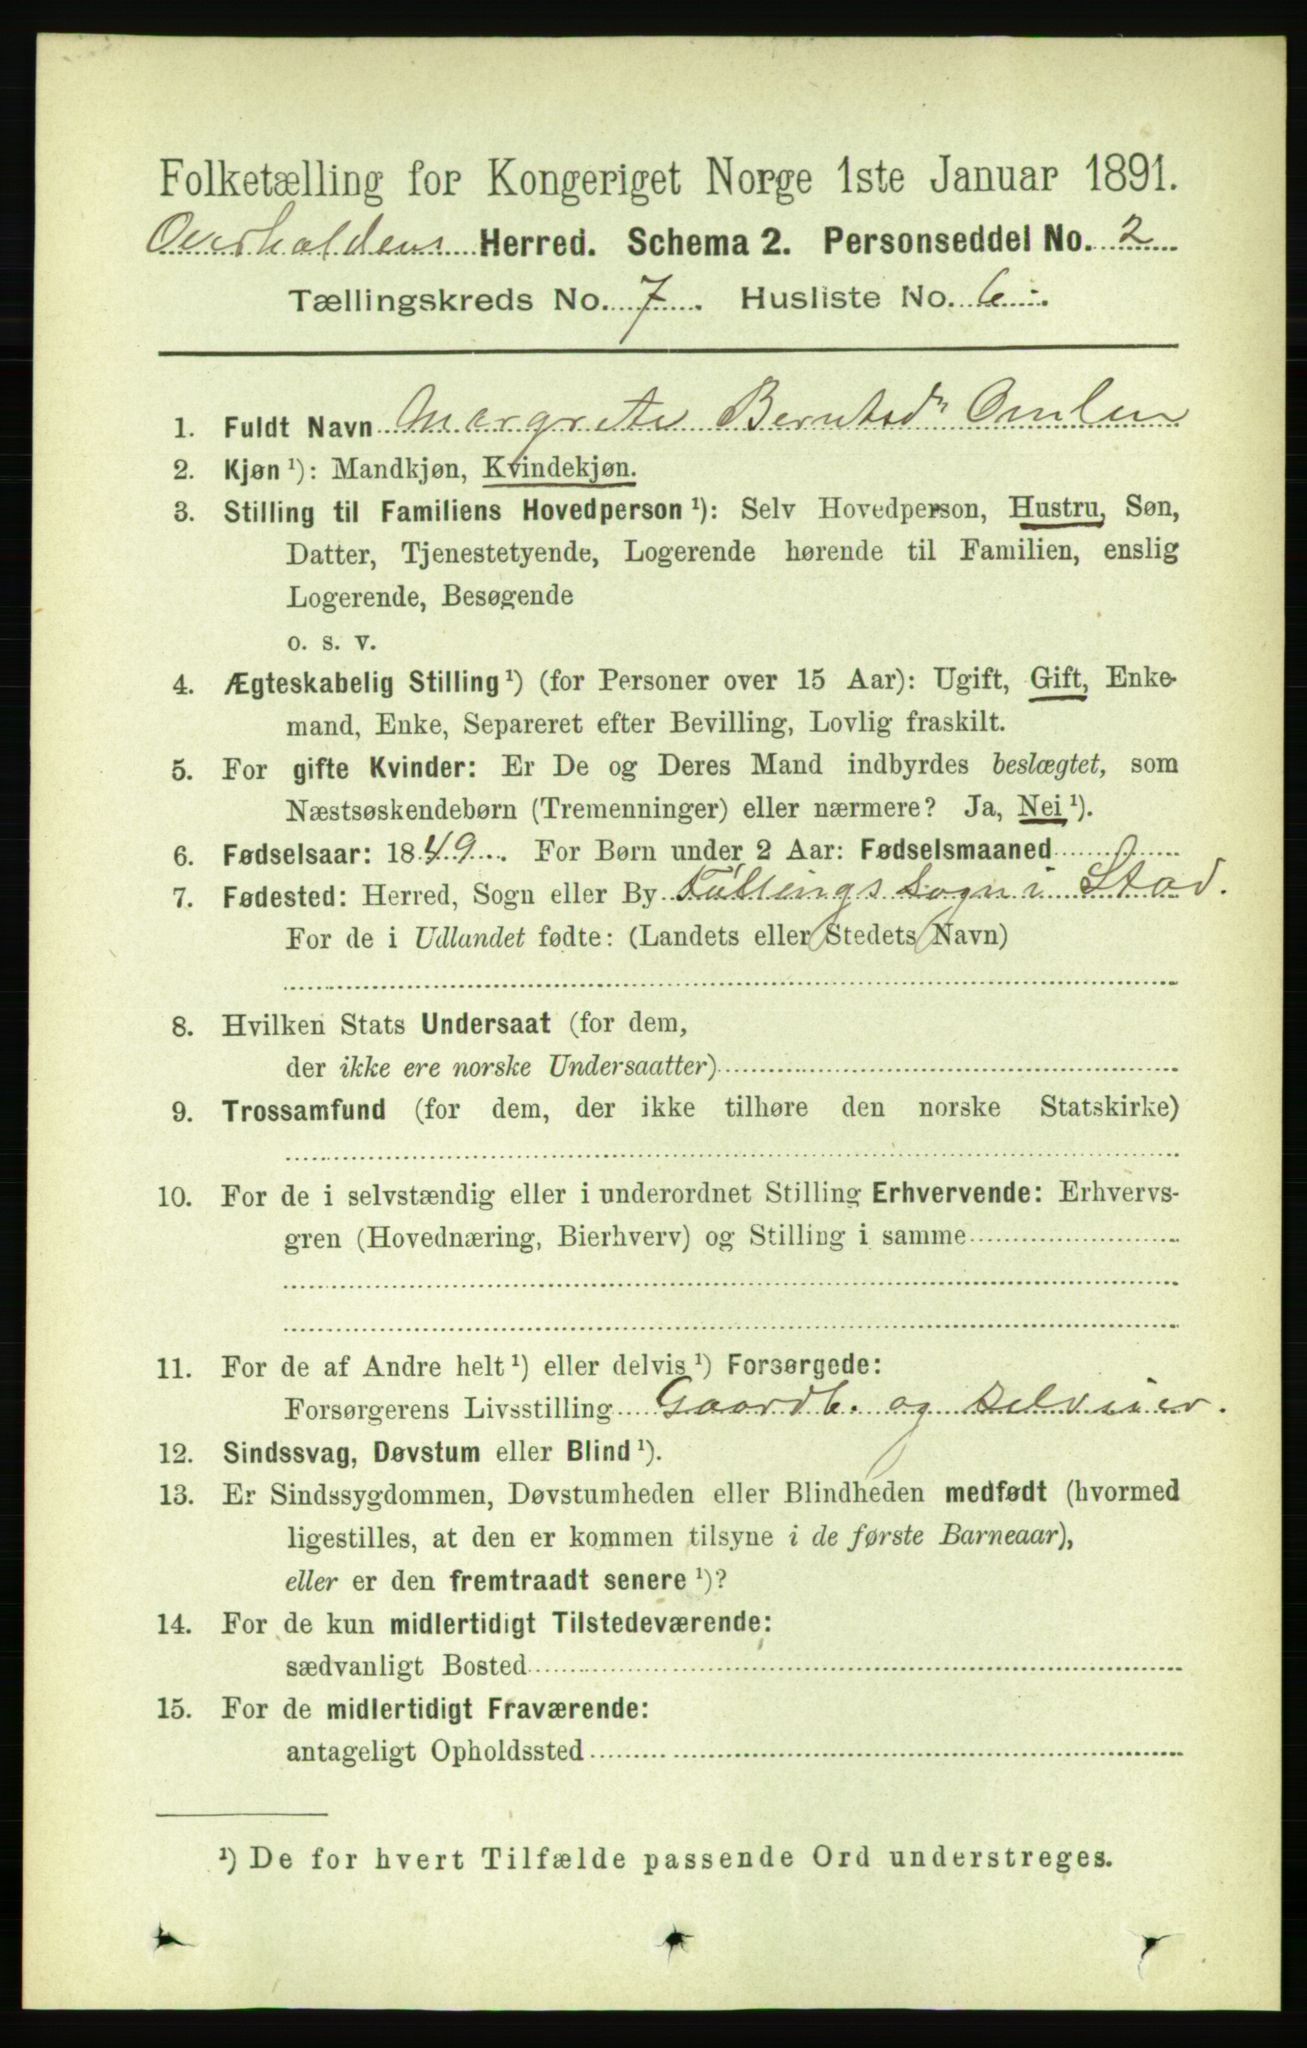 Folketælling for Kongeriget Norge 1ste Januar 1891.
Overhaldens Herred. Schema 2. Personseddel No. 2
Tællingskreds No. 7. Husliste No. 6.
1. Fuldt Navn Margrete Berntsdr Omlen
2. Kjøn ¹): Mandkjøn, Kvindekjøn.
3. Stilling til Familiens Hovedperson ¹): Selv Hovedperson, Hustru, Søn,
Datter, Tjenestetyende, Logerende hørende til Familien, enslig
Logerende, Besøgende
o. s. v.
4. Ægteskabelig Stilling ¹) (for Personer over 15 Aar): Ugift, Gift, Enke-
mand, Enke, Separeret efter Bevilling, Lovlig fraskilt.
5. For gifte Kvinder: Er De og Deres Mand indbyrdes beslægtet, som
Næstsøskendebørn (Tremenninger) eller nærmere? Ja, Nei ¹).
6. Fødselsaar: 1849. For Børn under 2 Aar: Fødselsmaaned
7. Fødested: Herred, Sogn eller By Følling Sogn i Stod.
For de i Udlandet fødte: (Landets eller Stedets Navn)
8. Hvilken Stats Undersaat (for dem,
der ikke ere norske Undersaatter)
9. Trossamfund (for dem, der ikke tilhøre den norske Statskirke)
10. For de i selvstændig eller i underordnet Stilling Erhvervende: Erhvervs-
gren (Hovednæring, Bierhverv) og Stilling i samme
11. For de af Andre helt ¹) eller delvis ¹) Forsørgede:
Forsørgerens Livsstilling Gaardb. og Selveier.
12. Sindssvag, Døvstum eller Blind ¹).
13. Er Sindssygdommen, Døvstumheden eller Blindheden medfødt (hvormed
ligestilles, at den er kommen tilsyne i de første Barneaar),
eller er den fremtraadt senere ¹)?
14. For de kun midlertidigt Tilstedeværende:
sædvanligt Bosted
15. For de midlertidigt Fraværende:
antageligt Opholdssted
¹) De for hvert Tilfælde passende Ord understreges.